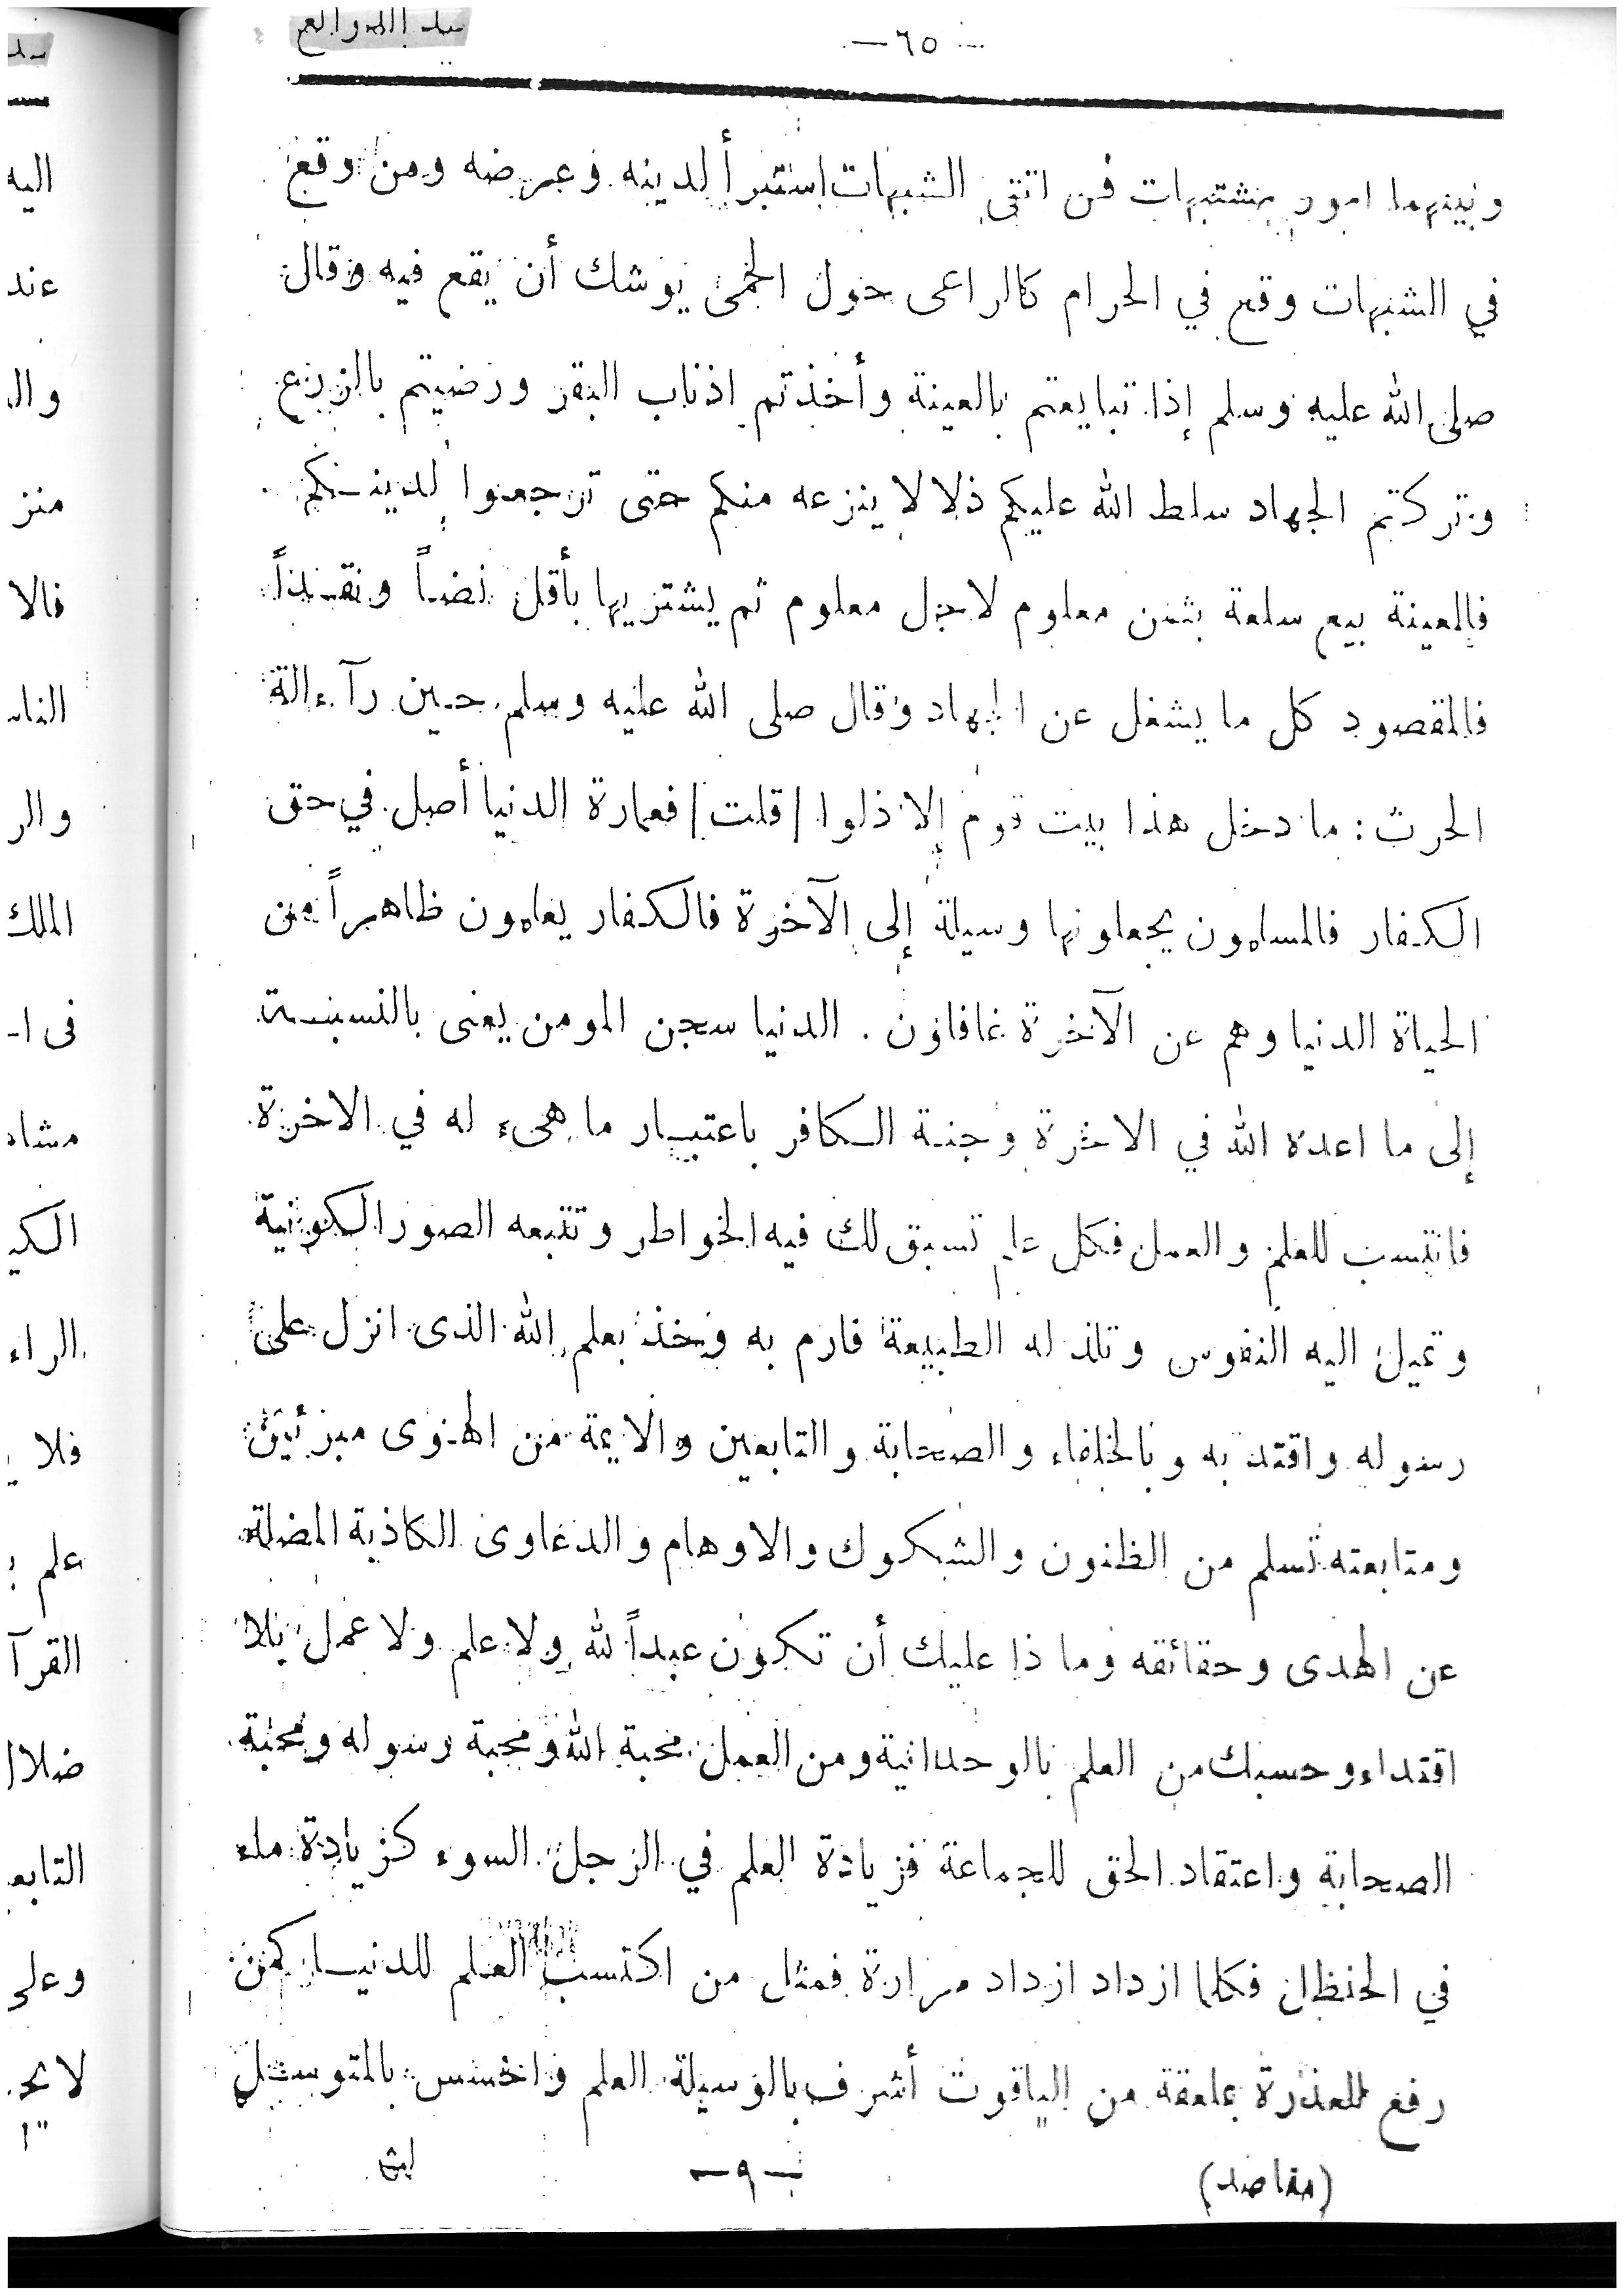 سد الذرائع
— ٦٥ —
وبينهما امور مشتبهات فمن اتقى الشبهات استبرأ لدينه وعرضه ومن وقع
في الشبهات وقع في الحرام كالراعى حول الحمى يوشك أن يقع فيه وقال
صلى الله عليه وسلم إذا تبايعتم بالعينة وأخذتم اذناب البقر ورضيتم بالزرع
وتركتم الجهاد سلط الله عليكم ذلا لا ينزعه منكم حتى ترجعوا لدينكم
فالعينة بيع سلعة بثمن معلوم لاجل معلوم ثم يشتريها بأقل نضاً ونقداً
فالمقصود كل ما يشغل عن الجهاد وقال صلى الله عليه وسلم حين رآءالة
الحرث : ما دخل هذا بيت قوم إلا ذلوا / قلت / فعمارة الدنيا أصل في حق
الكفار فالمسلمون يجعلونها وسيلة إلى الآخرة فالكفار يعلمون ظاهراً من
الحياة الدنيا وهم عن الآخرة غافلون . الدنيا سجن المومن يعنى بالنسبة
إلى ما اعده الله في الاخرة وجنة الكافر باعتبار ما هىء له في الاخرة
فانتسب للعلم والعمل فكل علم تسبق لك فيه الخواطر وتتبعه الصور الكونية
وتميل اليه النفوس وتلذ له الطبيعة فارم به وخذ بعلم الله الذى انزل على
رسوله واقتد به وبالخلفاء والصحابة والتابعين والايمة من الهوى مبرئين
ومتابعته تسلم من الظنون والشكوك والاوهام والدعاوى الكاذبة المضلة
عن الهدى وحقائقه وما ذا عليك أن تكون عبداً لله ولا علم ولا عمل بلا
اقتداء وحسبك من العلم بالوحدانية ومن العمل محبة الله ومحبة رسوله ومحبة
الصحابة واعتقاد الحق للجماعة فزيادة العلم في الرجل السوء كزيادة ماء
في الحنظل فكلما ازداد ازداد مرارة فمثل من اكتسب العلم للدنيا كمن
رفع للعذرة بملعقة من الياقوت أشرف بالوسيلة العلم واخسس بالمتوسل
(مقاصد)
— ٩ —